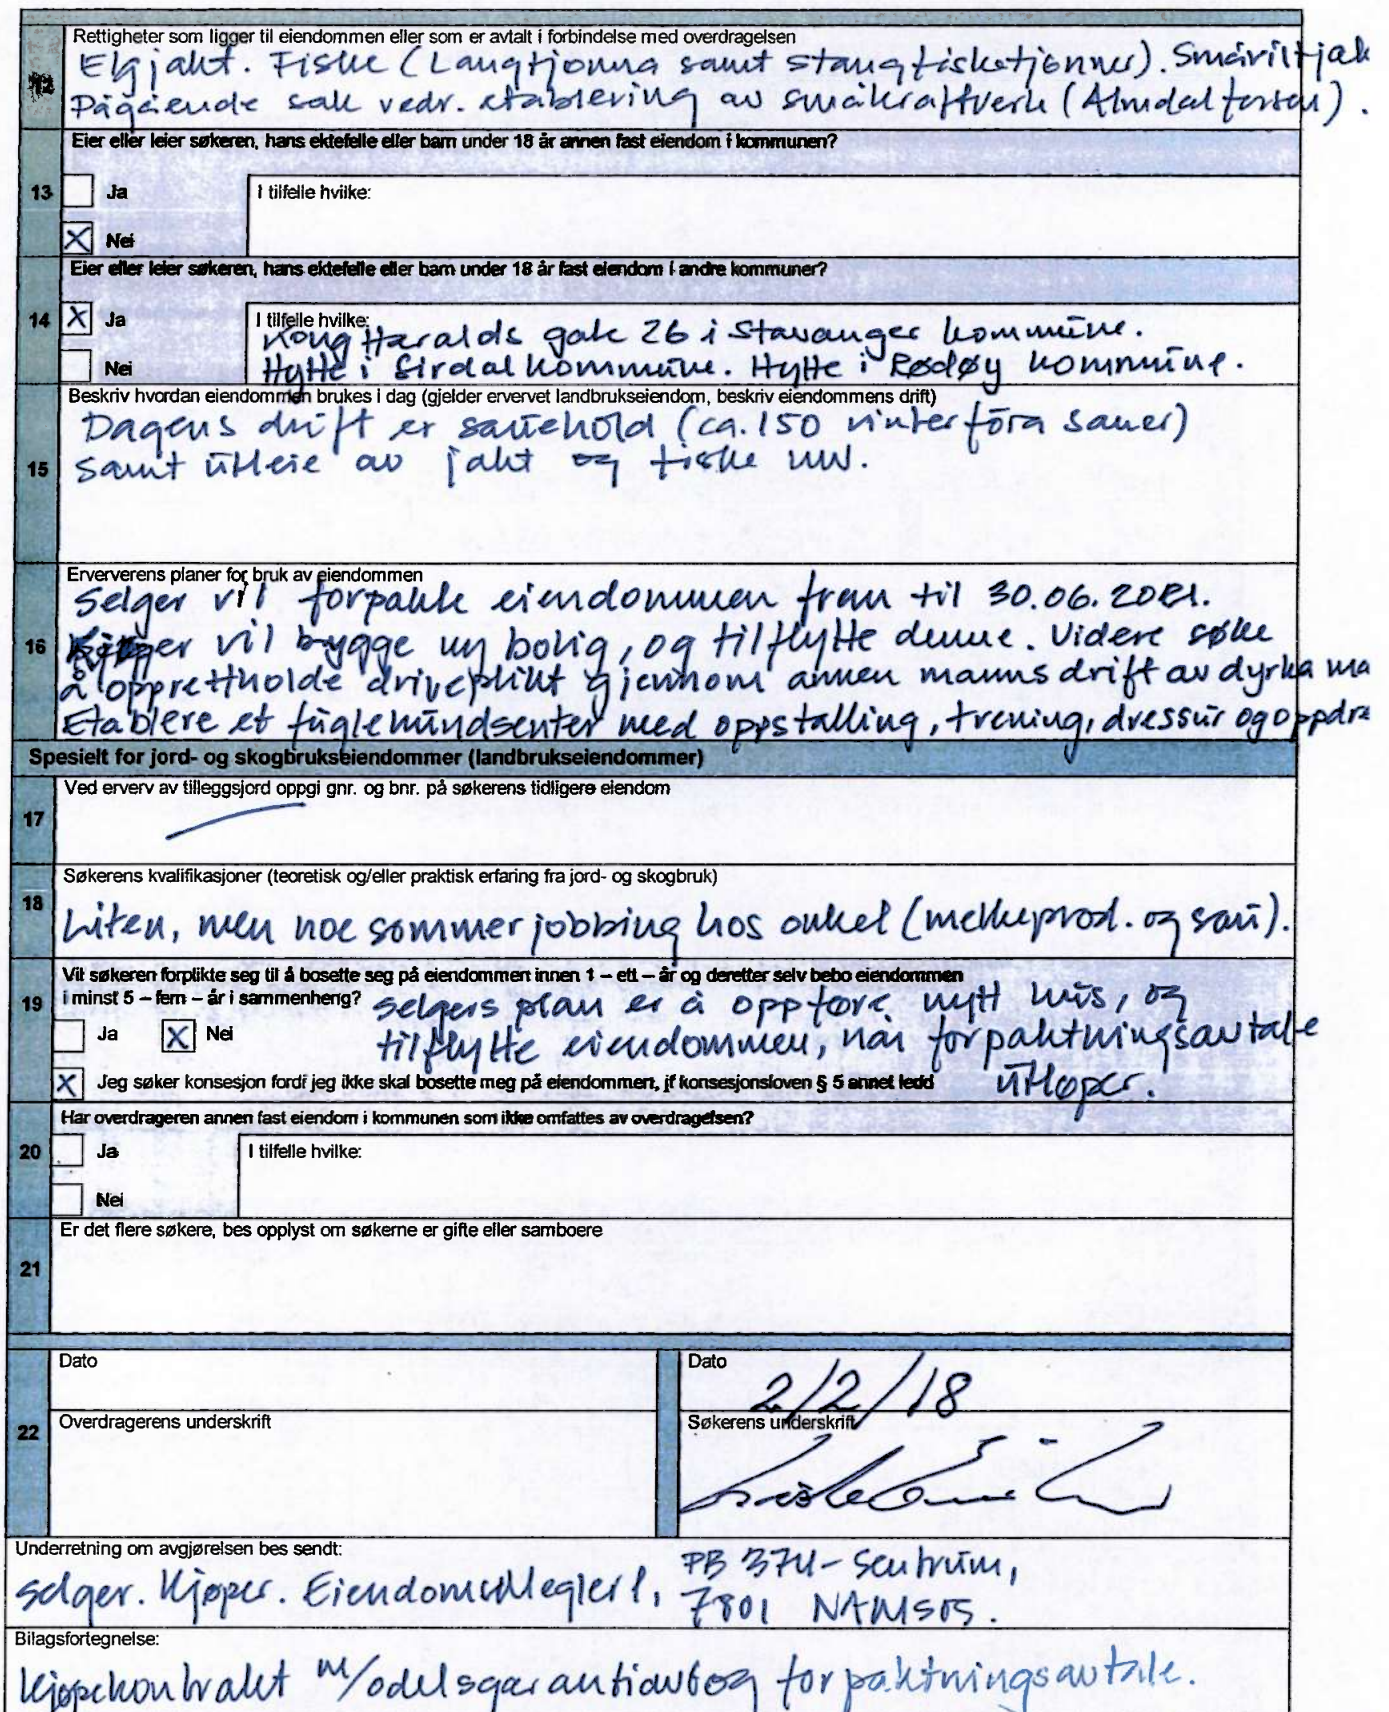 Rettigheter som ligger til eiendommen eller som er avtalt i forbindelse med overdragelsen
Elgjakt. Fiske (Langtjønna samt stangfisketjønner). Småviltjak
Pågående sak vedr. etablering av småkraftverk (Almdalforsen).
12
Eier eller leier søkeren, hans ektefelle eller barn under 18 år annen fast eiendom i kommunen?
13
Ja
I tilfelle hvilke:
X Nei
Eier eller leier søkeren, hans ektefelle eller barn under 18 år fast eiendom i andre kommuner?
14
X Ja
I tilfelle hvilke:
Kong Haralds gate 26 i Stavanger kommune.
Nei
Hytte i Sirdal kommune. Hytte i Rødøy kommune.
Beskriv hvordan eiendommen brukes i dag (gjelder ervervet landbrukseiendom, beskriv eiendommens drift)
Dagens drift er sauehold (ca. 150 vinterfôra sauer)
15
samt utleie av jakt og fiske mv.
Erververens planer for bruk av eiendommen
Selger vil forpakte eiendommen frem til 30.06.2021.
16
Kjøper vil bygge ny bolig, og tilflytte denne. Videre søke
å opprettholde driveplikt gjennom annen manns drift av dyrka ma
Etablere et fuglehundsenter med oppstalling, trening, dressur og oppdre
Spesielt for jord- og skogbrukseiendommer (landbrukseiendommer)
Ved erverv av tilleggsjord oppgi gnr. og bnr. på søkerens tidligere eiendom
17
Søkerens kvalifikasjoner (teoretisk og/eller praktisk erfaring fra jord- og skogbruk)
18
Liten, men noe sommerjobbing hos onkel (melkeprod. og sau).
Vil søkeren forplikte seg til å bosette seg på eiendommen innen 1 – ett – år og deretter selv bebo eiendommen
19
i minst 5 – fem – år i sammenheng?
selgers plan er å oppføre nytt hus, og
Ja X Nei
tilflytte eiendommen, når forpaktningsavtale
X Jeg søker konsesjon fordi jeg ikke skal bosette meg på eiendommen, jf konsesjonsloven § 5 annet ledd
utløper.
Har overdrageren annen fast eiendom i kommunen som ikke omfattes av overdragelsen?
20
Ja
I tilfelle hvilke:
Nei
Er det flere søkere, bes opplyst om søkerne er gifte eller samboere
21
Dato
Dato
2/2/18
22
Overdragerens underskrift
Søkerens underskrift
Underretning om avgjørelsen bes sendt:
selger. Kjøper. EiendomsMegler 1, PB 374 - Sentrum,
7801 NAMSOS.
Bilagsfortegnelse:
Kjøpekontrakt m/odelsgarantiavt og forpaktningsavtale.